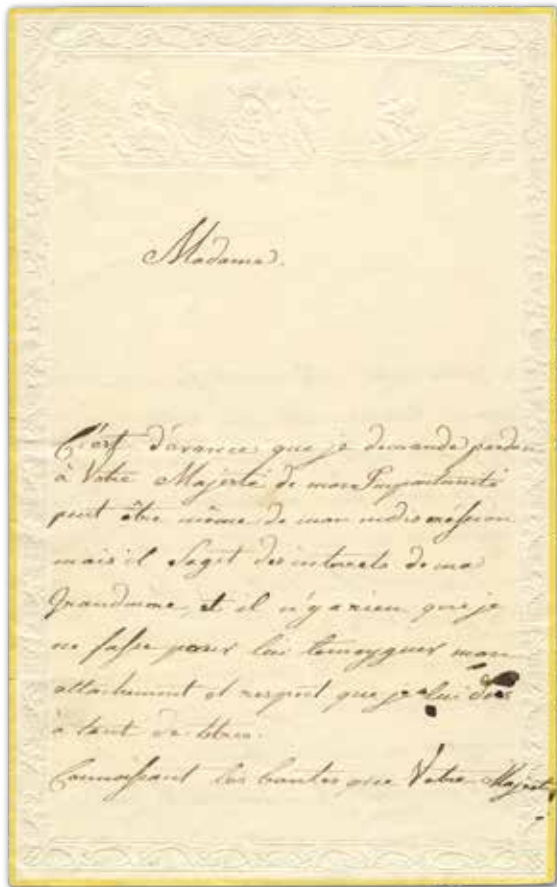 Madame.
C'est d'avance que je demande pardon
à Votre Majesté de mon Importunité
peut être même de mon indiscréssion
mais il Sagit des interets de ma
Grandmere, et il n'y a rien que je
ne fasse pour lui temoyguer mon
attachement et respect que je lui dois
à tant de titres.
Connoissant les bontes que Votre Majesté